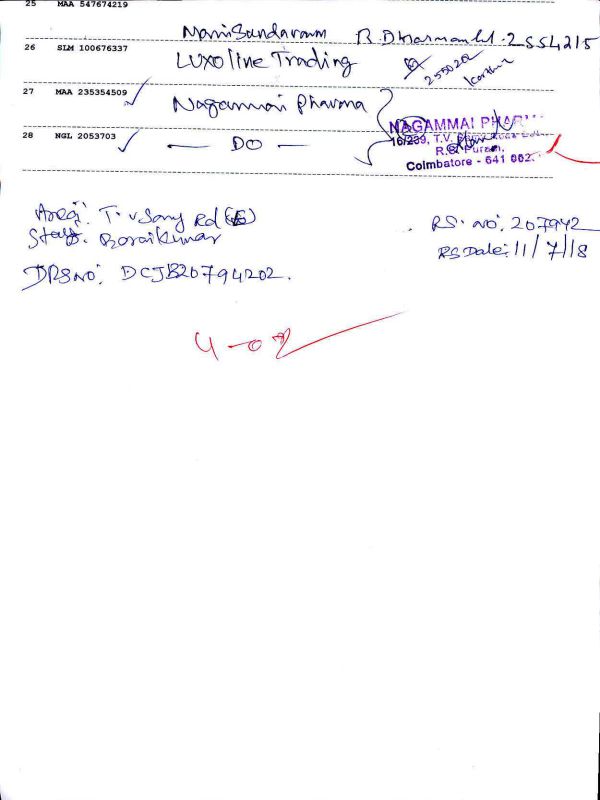 25 MAA 547674219
ManiSundaram R. Dharmambl. 2554215
26 SLM 100676337
Luxoline Trading 2550202
27 MAA 235354509
Nagammai Pharma
NAGAMMAI PHARM
16/239, T.V.
28 NGL 2053703 — DO —
R.S. Puram,
Coimbatore - 641 002.
Area: T. v Samy Rd (E)
Staff. Boraikumar
RS. no: 207942
RS Date: 11/7/18
DRS NO: DCJB20794202.
4-02